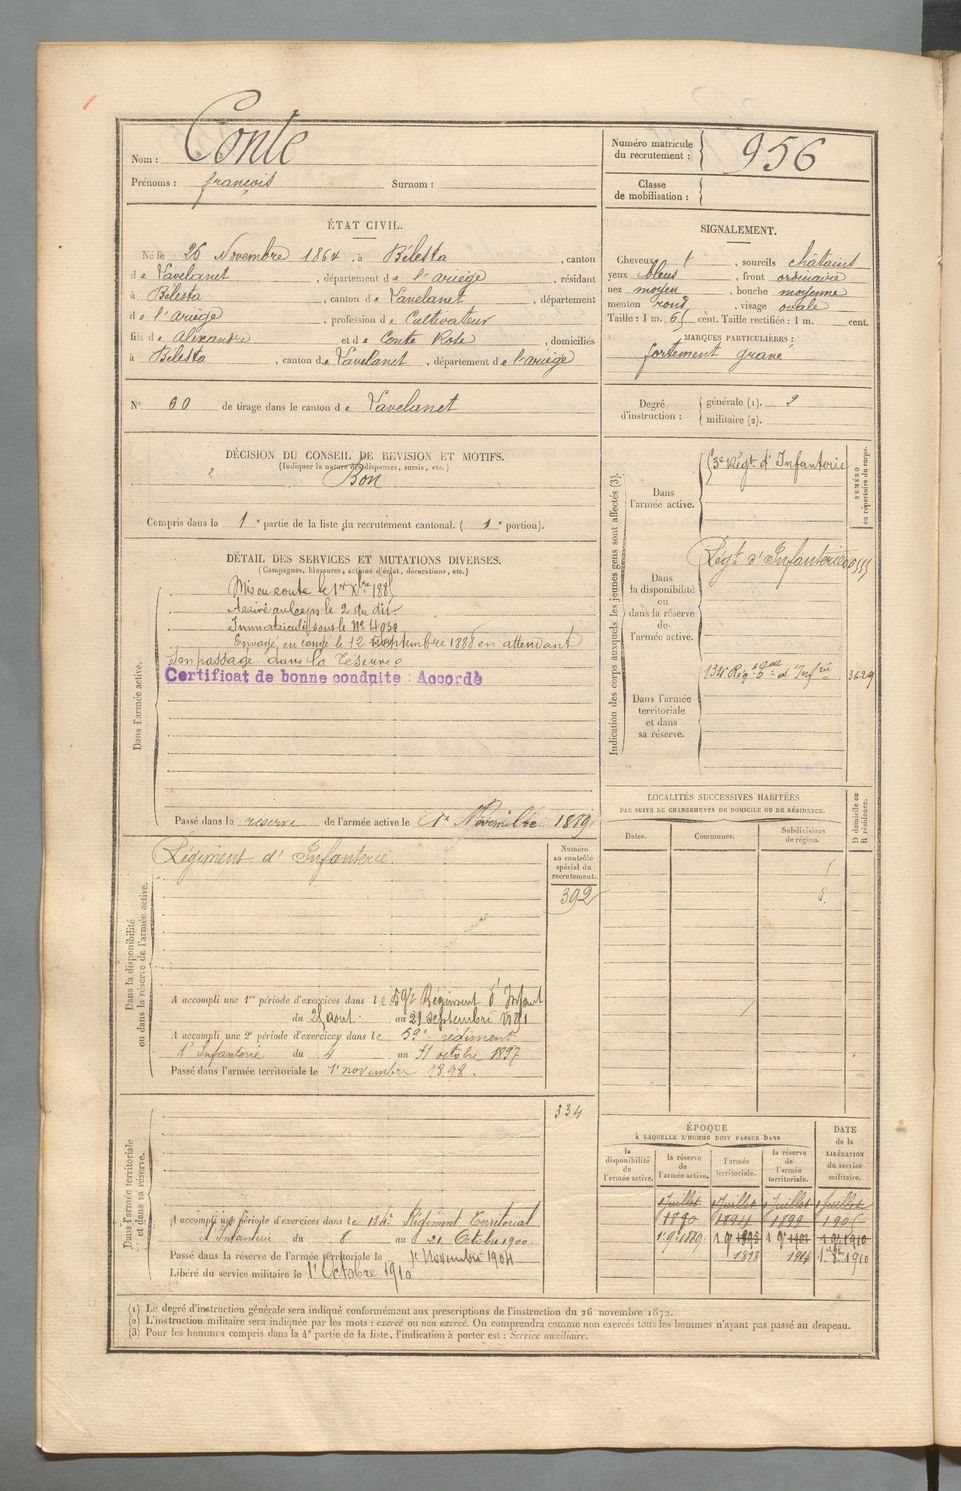 Nom : Conte
Prénoms : françois Surnom :
Numéro matricule
du recrutement : 956
Classe
de mobilisation :
ÉTAT CIVIL.
Né le 26 Novembre 1864, à Bélesta, canton
de Lavelanet, département de l'ariège, résidant
à Bélesta, canton de Lavelanet, département
de l'ariège, profession de Cultivateur
fils de Alexandre et de Conte Rose, domiciliés
à Bélesta, canton de Lavelanet, département de l'ariège
N° 60 de tirage dans le canton de Lavelanet
SIGNALEMENT.
Cheveux, sourcils châtains
yeux bleus, front ordinaire
nez moyen, bouche moyenne
menton rond, visage ovale
Taille : 1 m. 65 cent. Taille rectifiée : 1 m. cent.
MARQUES PARTICULIÈRES :
fortement gravé
Degré
d'instruction :
générale (1). 2
militaire (2).
DÉCISION DU CONSEIL DE REVISION ET MOTIFS.
(Indiquer la nature des dispenses, sursis, etc.)
Bon
Compris dans la 1re partie de la liste du recrutement cantonal. (1re portion).
DÉTAIL DES SERVICES ET MUTATIONS DIVERSES.
(Campagnes, blessures, actions d'éclat, décorations, etc.)
Dans l'armée active.
Mis en route le 1er Xbre 1885
Arrivé au Corps le 2 du dit
Immatriculé sous le N° 4939
Envoyé en congé le 12 Septembre 1888 en attendant
son passage dans la réserve
Certificat de bonne conduite : Accordé
Passé dans la réserve de l'armée active le 1er Novembre 1889
Indication des corps auxquels les jeunes gens sont affectés (3).
NUMÉRO
au répertoire du corps.
Dans
l'armée active.
Régt d'Infanterie
Dans
la disponibilité
ou
dans la réserve
de
l'armée active.
Régt d'Infanterie
Dans l'armée
territoriale
et dans
sa réserve.
134e Rég. d'Infrie 3629
LOCALITÉS SUCCESSIVES HABITÉES
PAR SUITE DE CHANGEMENTS DE DOMICILE OU DE RÉSIDENCE.
Dates. Communes. Subdivisions
de région.
D domicile ou
R résidence.
Dans la disponibilité
ou dans la réserve de l'armée active.
Régiment d'Infanterie
Numéro
au contrôle
spécial du
recrutement.
392
A accompli une 1re période d'exercices dans le 59e Régiment d'Infant
du 25 aout au 21 septembre 1891
A accompli une 2e période d'exercices dans le 59e régiment
d'Infanterie du 4 au 31 octobre 1897
Passé dans l'armée territoriale le 1er novembre 1898.
Dans l'armée territoriale
et dans sa réserve.
334
A accompli une période d'exercices dans le 134e Régiment Territorial
d'Infanterie du 8 au 21 Octobre 1900
Passé dans la réserve de l'armée territoriale le 1er Novembre 1904
Libéré du service militaire le 1er Octobre 1910
ÉPOQUE
À LAQUELLE L'HOMME DOIT PASSER DANS
la
disponibilité
de
l'armée active.
la réserve
de
l'armée active.
l'armée
territoriale.
la réserve
de
l'armée
territoriale.
DATE
de la
LIBÉRATION
du service
militaire.
1 Juillet 1 Juillet 1 Juillet 1 Juillet
1890 1894 1899 1905
1898 1904 1910
(1) Le degré d'instruction générale sera indiqué conformément aux prescriptions de l'instruction du 26 novembre 1872.
(2) L'instruction militaire sera indiquée par les mots : exercé ou non exercé. On comprendra comme non exercés tous les hommes n'ayant pas passé au drapeau.
(3) Pour les hommes compris dans la 4e partie de la liste, l'indication à porter est : Service auxiliaire.